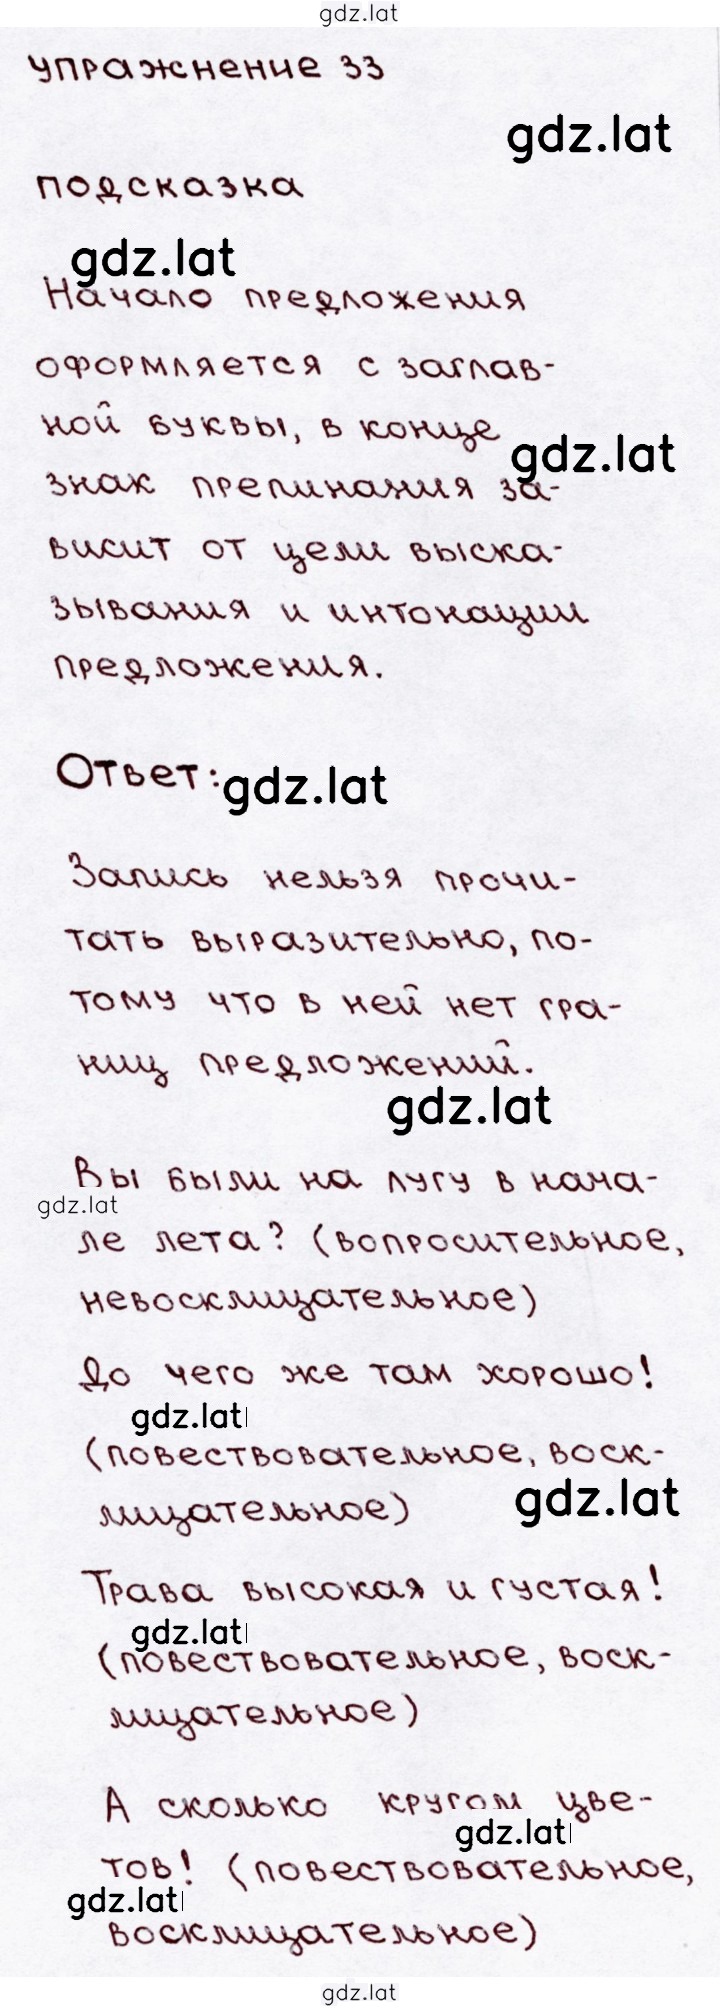 gdz.lat
упражнение 33
gdz.lat
подсказка
gdz.lat
Начало предложения
оформляется с заглав-
ной буквы, в конце
gdz.lat
знак препинания за-
висит от цели выска-
зывания и интонации
предложения.
Ответ:
gdz.lat
Запись нельзя прочи-
тать выразительно, по-
тому что в ней нет гра-
ниц предложений.
gdz.lat
Вы были на лугу в нача-
gdz.lat
ле лета? (вопросительное,
невосклицательное)
До чего же там хорошо!
gdz.lat
(повествовательное, воск-
gdz.lat
лицательное)
Трава высокая и густая!
gdz.lat
(повествовательное, воск-
лицательное)
А сколько кругом цве-
gdz.lat
тов! (повествовательное,
gdz.lat
восклицательное)
gdz.lat